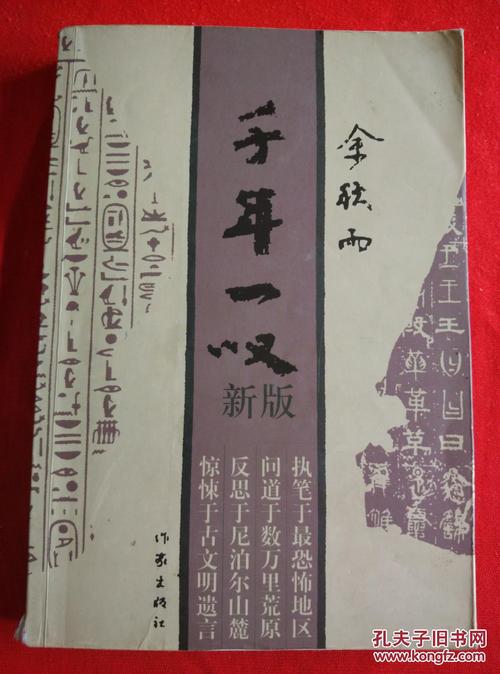 千年一叹
新版
余秋雨
执笔于最恐怖地区
问道于数万里荒原
反思于尼泊尔山麓
惊悚于古文明遗言
作家出版社
孔夫子旧书网
www.kongfz.com